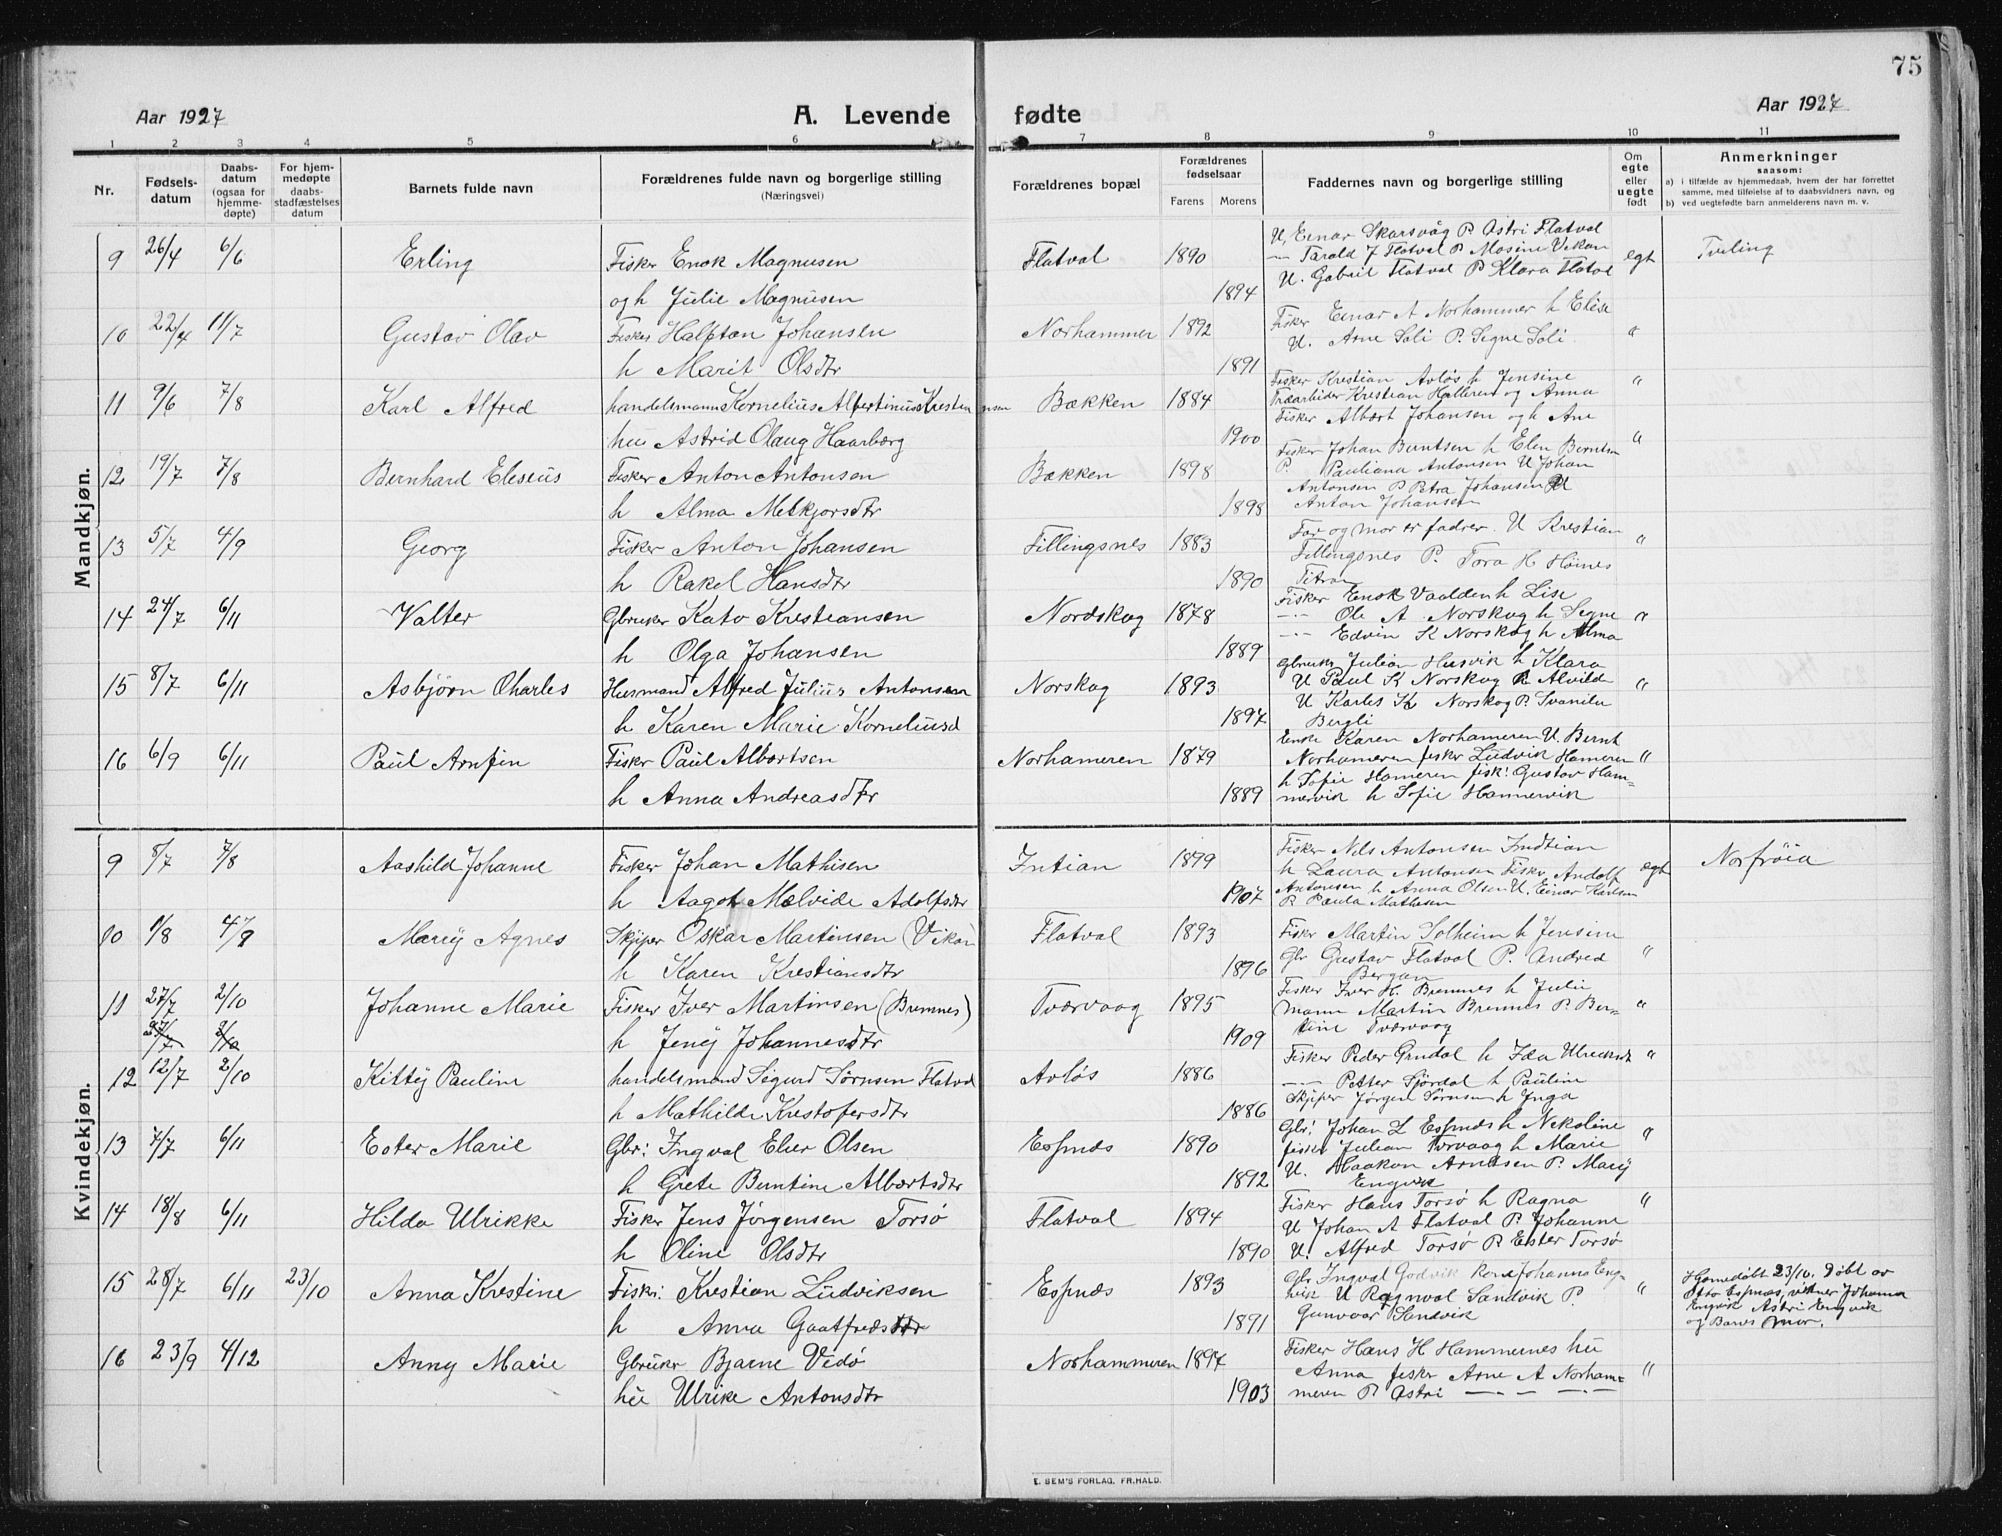 75
Aar 1927
A. Levende fødte
Aar 1927
1 2 3 4 5 6 7 8 9 10 11
Nr.
Fødsels-
datum
Daabs-
datum
(ogsaa for
hjemme-
døpte)
For hjem-
medøpte
daabs-
stadfæstelses
datum
Barnets fulde navn
Forældrenes fulde navn og borgerlige stilling
(Næringsvei)
Forældrenes bopæl
Forældrenes
fødselsaar
Farens Morens
Faddernes navn og borgerlige stilling
Om
egte
eller
uegte
født
Anmerkninger
saasom:
a) i tilfælde av hjemmedaab, hvem der har forrettet
samme, med tilføielse af to daabsvidners navn, og
b) ved uegtefødte barn anmelderens navn m. v.
Mandkjøn.
9 26/4 6/6 Erling Fisker Enok Magnusen Flatval 1890 egt Tvilling
og h Julie Magnusen 1894
U. Einar Skarsvåg P. Astri Flatval
— Harald J Flatval P. Mosine Vikan
U. Gabriel Flatval P. Klara Flatval
10 22/4 11/7 Gustav Olav Fisker Halfdan Johansen Norhammer 1892 "
h Marit Olsdtr 1891
Fisker Einar A Norhammer h Elise
U. Arne Soli P. Signe Soli
11 9/6 7/8 Karl Alfred handelsmann Kornelius Albertinus Krestiansen Bækken 1884 "
hu Astrid Olaug Haarberg 1900
Fisker Krestian Avløs h Jensine
Træarbider Krestian Halleren og Anna
Fisker Albert Johansen og h Ane
12 19/7 7/8 Bernhard Eleseus Fisker Anton Antonsen Bækken 1898 "
h Alma Melkjorsdtr 1898
Fisker Johan Berntsen h Elen Berntsen
P. Pauliana Antonsen U Johan
Antonsen P Petra Johansen U
Anton Johansen
13 5/7 4/9 Georg Fisker Anton Johansen Fillingsnes 1883 "
h Rakel Hansdtr 1890
Far og mor er fadrer. U Krestian
Fillingsnes P. Tora H Høines
Titran
14 24/7 6/11 Valter Gbruker Kato Krestiansen Nordskag 1878 "
h Olga Johansen 1889
Fisker Enok Vaalden h Lise
—"— Ole A Norskag h Signe
—"— Edvin K Norskag h Alma
15 8/7 6/11 Asbjørn Charles Husmand Alfred Julius Antonsen Norskag 1893 "
h Karen Marie Korneliusd 1897
Gbruker Julian Husvik h Klara
U Paul K Norskag P. Alvild
U Karles K Norskag P. Svanilu
Bergli
16 6/9 6/11 Paul Arnfin Fisker Paul Albertsen Norhameren 1879 "
h Anna Andreasdtr 1889
Enke Karen Norhameren U. Bernt
Norhameren fisker Ludvik Hameren
h Sofie Hameren fisk: Gustav Ham-
mervik h Sofie Hammervik
Kvindekjøn.
9 8/7 7/8 Aashild Johanne Fisker Johan Mathisen Intian 1899 egt Norfrøia
h Aagot Mælvide Adolfsdtr 1907
Fisker Nils Antonsen Indtian
h Laura Antonsen Fisker Andolf
Antonsen h Anna Olsen U. Einar Karlsen
P. Paula Mathisen
10 1/8 4/9 Mary Agnes Skjiper Oskar Martinsen (Vikan Flatval 1893 "
h Karen Krestiansdtr 1896
Fisker Martin Solheim h Jensine
Gbr Gustav Flatval P. Andrea
Bergan
11 27/7 2/10 Johanne Marie Fisker Iver Martinsen (Bremnes) Tværvaag 1895 "
27/7 2/10 h Jeny Johannesdtr 1909
Fisker Iver H. Bremnes h Juli
mann Martin Bremnes P. Ber-
tine Tværvaag
12 12/7 2/10 Kitty Pauline handelsmand Sigurd Sørnsen Flatval Avløs 1886 "
h Mathilde Krestofersdtr 1886
Fisker Peder Grndal h Ida
—"— Petter Sjørdal h Pauline
Skjiper Jørgen Sørnsen h Inga
13 7/7 6/11 Ester Marie Gbr: Ingval Elier Olsen Espnæs 1890 "
h Grete Berntine Albertsdtr 1892
Gbr: Johan L Espnæs h Nekoline
fisker Julian Torvaag h Marie
U. Haakon Arntsen P. Mary
Engvik
14 18/8 6/11 Hilda Ulrikke Fisker Jens Jørgensen Torsø Flatval 1894 "
h Oline Olsdtr 1890
Fisker Hans Torsø h Ragna
U Johan A Flatval P. Johanne
U. Alfred Torsø P. Ester Torsø
15 28/7 6/11 23/10 Anna Krestine Fisker: Krestian Ludviksen Espnæs 1893 "
h Anna Gaatfredsdtr 1891
Gbr Ingval Godvik kone Johanna Eng-
vik U Ragnval Sandvik P.
Gunvaar Sandvik
Hjemedøbt 23/10. Døbt av
Otto Espnæs, vitner Johanna
Engvik Astri Engvik
og Barnes mor.
16 23/9 4/12 Anny Marie Gbruker Bjarne Vedø Norhammeren 1897 "
hu Ulrike Antonsdtr 1903
Fisker Hans H Hammernes hu
Anna fisker Arne A Norham-
meren P. Astri — " — " —
E. SEM'S FORLAG, FR.HALD.